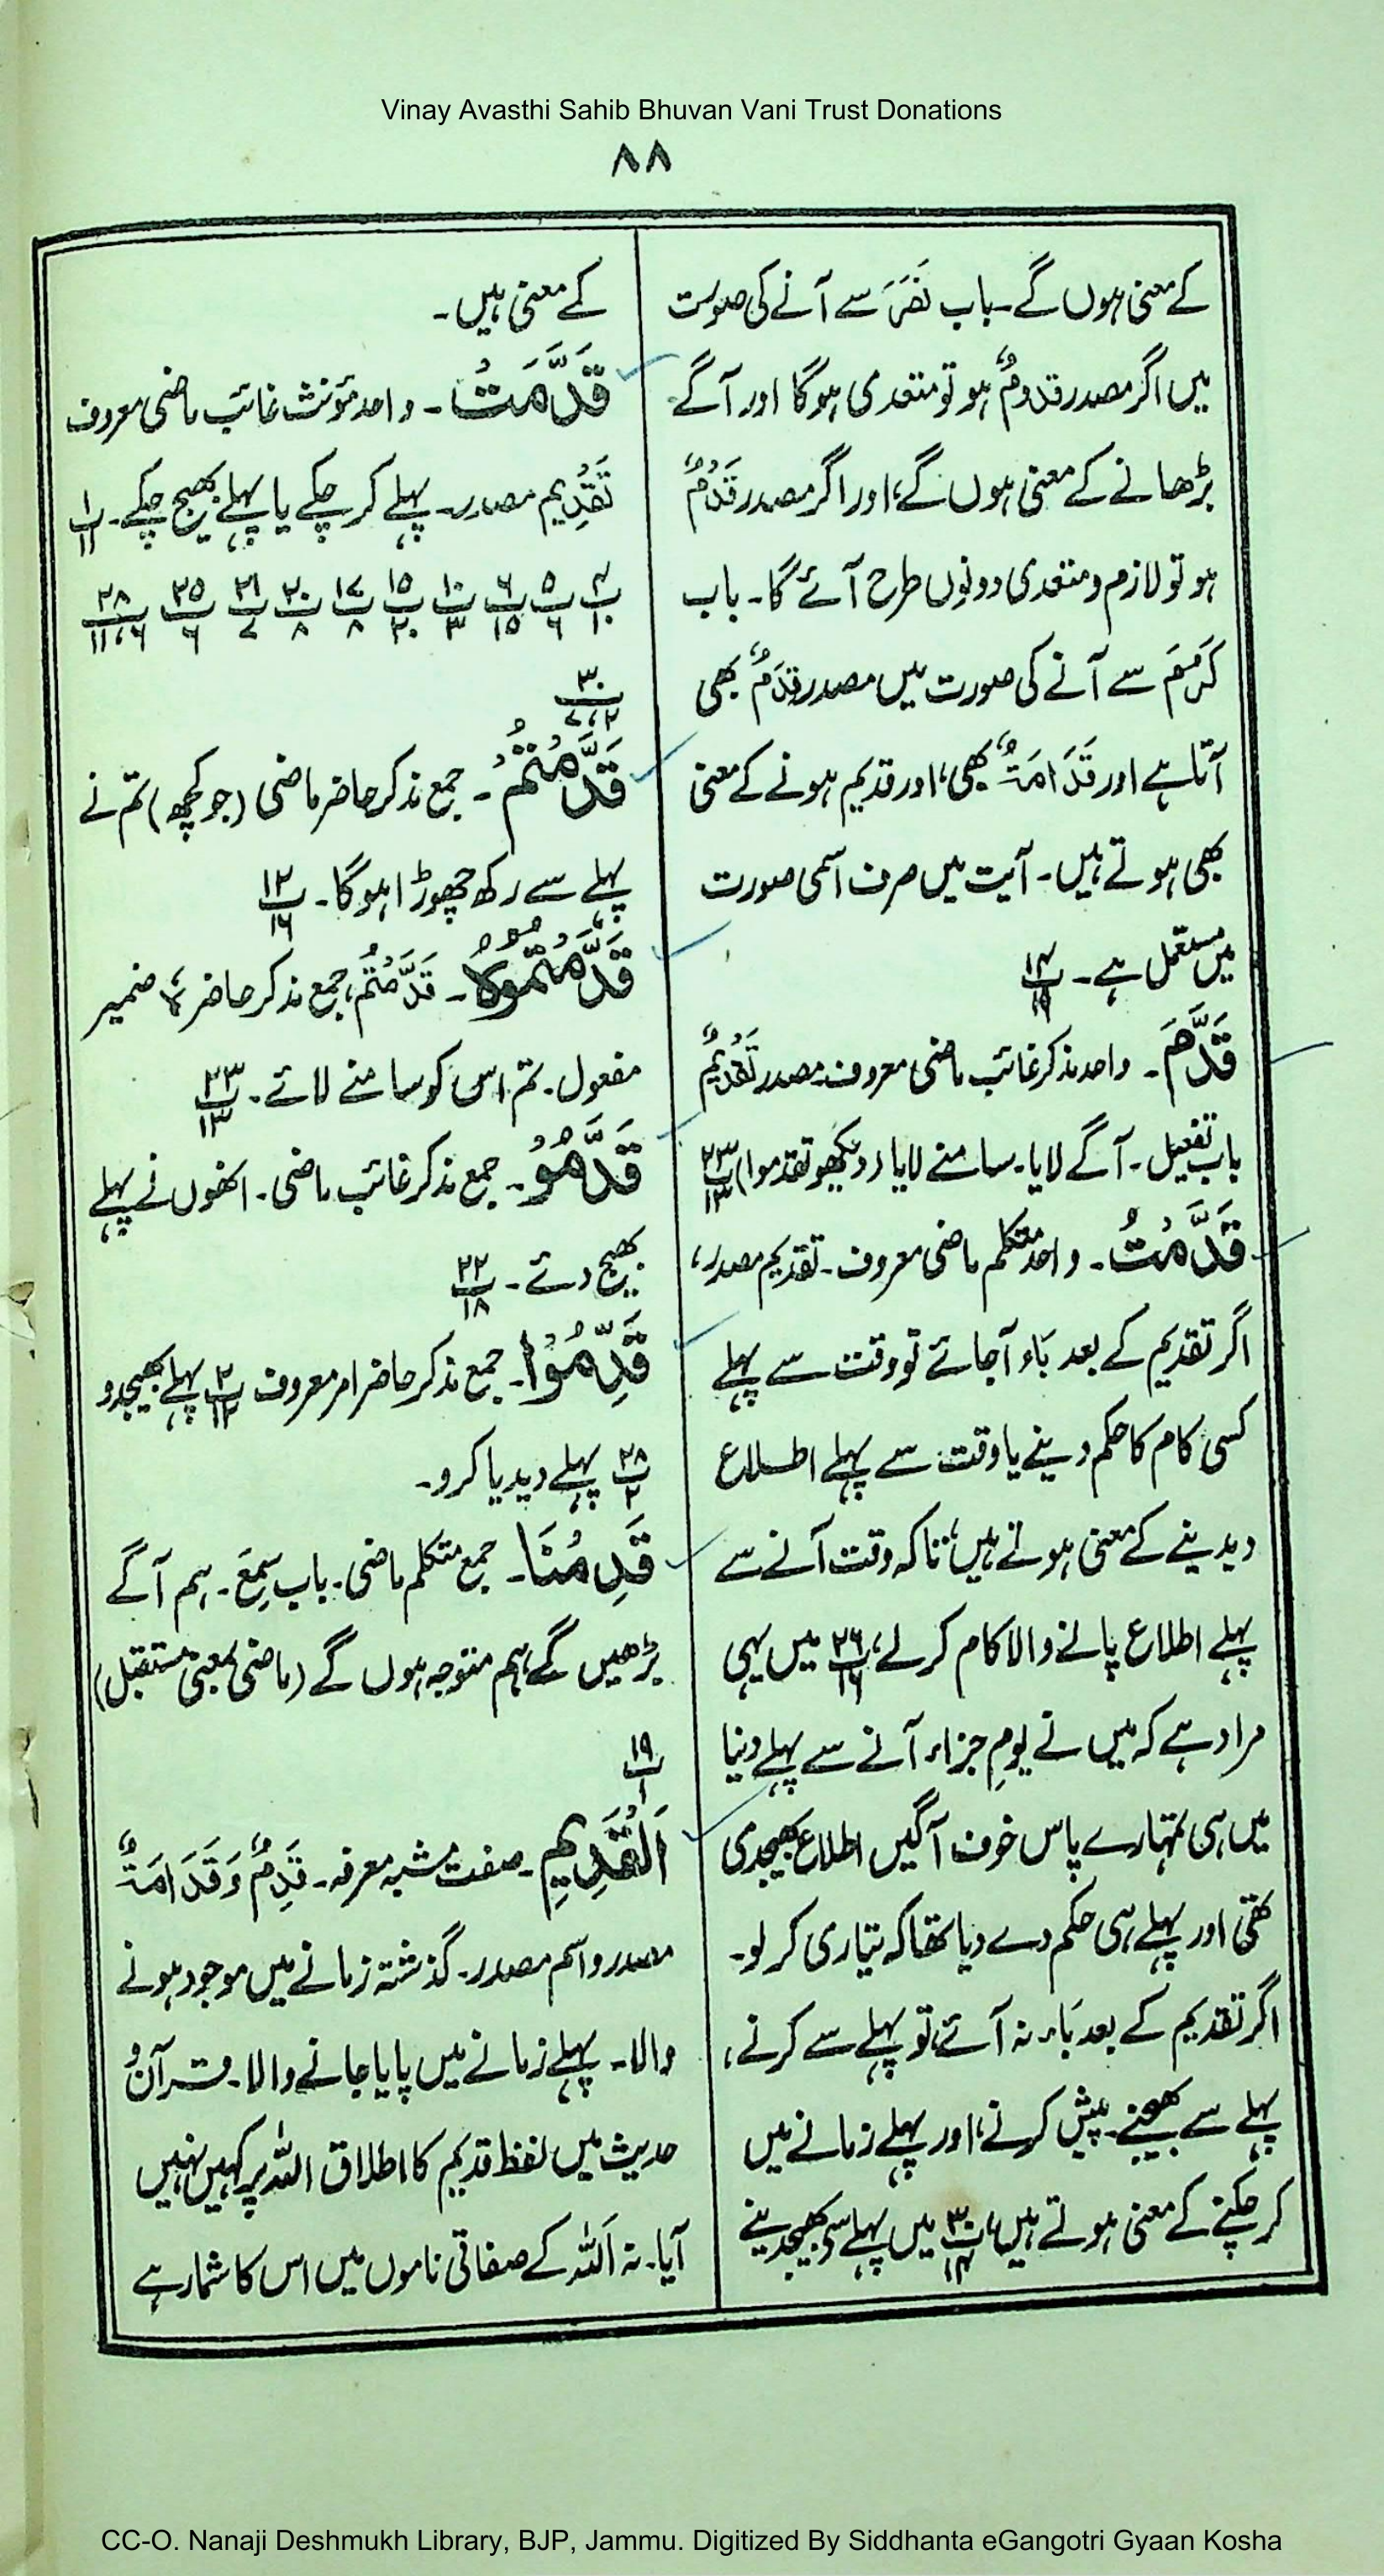 Vinay Avasthi Sahib Bhuvan Vani Trust Donations
۸۸
کے معنی ہوں گے۔ باب نَصَرَ سے آنے کی صورت
میں اگر مصدر قدومٌ ہو تو متعدی ہوگا اور آگے
بڑھانے کے معنی ہوں گے، اور اگر مصدر قَدْمٌ
ہو تو لازم و متعدی دونوں طرح آئے گا۔ باب
کَرُمَ سے آنے کی صورت میں مصدر قِدَمٌ بھی
آتا ہے اور قَدَامَةٌ بھی، اور قدیم ہونے کے معنی
بھی ہوتے ہیں۔ آیت میں صرف اسمی صورت
میں مستعمل ہے۔ پ۱۴/۱۹
قَدَّمَ۔ واحد مذکر غائب ماضی معروف مصدر تَقْدِیْمٌ
باب تفعیل۔ آگے لایا۔ سامنے لایا (دیکھو تقدموا) پ۲۳/۱۳
قَدَّمْتُ۔ واحد متکلم ماضی معروف۔ تقدیم مصدر،
اگر تقدیم کے بعد بَاء آجائے تو وقت سے پہلے
کسی کام کا حکم دینے یا وقت سے پہلے اطلاع
دیدینے کے معنی ہوتے ہیں، تاکہ وقت آنے سے
پہلے اطلاع پانے والا کام کر لے، پ۲۶/۱۶ میں یہی
مراد ہے کہ میں نے یومِ جزاء آنے سے پہلے دنیا
میں ہی تمہارے پاس خوف آگیں اطلاع بھیجدی
تھی اور پہلے ہی حکم دے دیا تھا کہ تیاری کر لو۔
اگر تقدیم کے بعد بَاء نہ آئے، تو پہلے سے کرنے،
پہلے سے بھیجنے۔ پیش کرنے، اور پہلے زمانے میں
کر چکنے کے معنی ہوتے ہیں، پ۳۰/۱۴ میں پہلے سے بھیجدینے
کے معنی ہیں۔
قَدَّمَتْ۔ واحد مؤنث غائب ماضی معروف
تَقْدِیم مصدر۔ پہلے کر چکے یا پہلے بھیج چکے۔ پ۱/۱۱
پ۴/۱۰ پ۵/۶ پ۶/۱۵ پ۱۰/۳ پ۱۵/۲۰ پ۱۷/۸ پ۲۰/۸ پ۲۱/۷ پ۲۵/۶ پ۲۸/۶،۱۱
پ۳۰/۲،۷
قَدَّمْتُمْ۔ جمع مذکر حاضر ماضی (جو کچھ) تم نے
پہلے سے رکھ چھوڑا ہوگا۔ پ۱۲/۱۶
قَدَّمْتُمُوْہُ۔ قَدَّمْتُمْ، جمع مذکر حاضر، ہُ ضمیر
مفعول۔ تم اس کو سامنے لائے۔ پ۲۳/۱۳
قَدَّمُوْ۔ جمع مذکر غائب ماضی۔ انھوں نے پہلے
بھیج دئے۔ پ۲۲/۱۸
قَدِّمُوْا۔ جمع مذکر حاضر امر معروف پ۲/۱۲ پہلے بھیجدو
پ۲۸/۲ پہلے دیدیا کرو۔
قَدِمْنَا۔ جمع متکلم ماضی۔ باب سَمِعَ۔ ہم آگے
بڑھیں گے، ہم متوجہ ہوں گے (ماضی بمعنی مستقبل)
پ۱۹/۱
اَلْقَدِیْمِ۔ صفت مشبہ معرفہ۔ قِدَمٌ وَ قَدَامَةٌ
مصدر و اسم مصدر۔ گذشتہ زمانے میں موجود ہونے
والا۔ پہلے زمانے میں پایا جانے والا۔ قرآن و
حدیث میں لفظ قدیم کا اطلاق اللّٰہ پر کہیں نہیں
آیا۔ نہ اَللّٰہ کے صفاتی ناموں میں اس کا شمار ہے
CC-O. Nanaji Deshmukh Library, BJP, Jammu. Digitized By Siddhanta eGangotri Gyaan Kosha